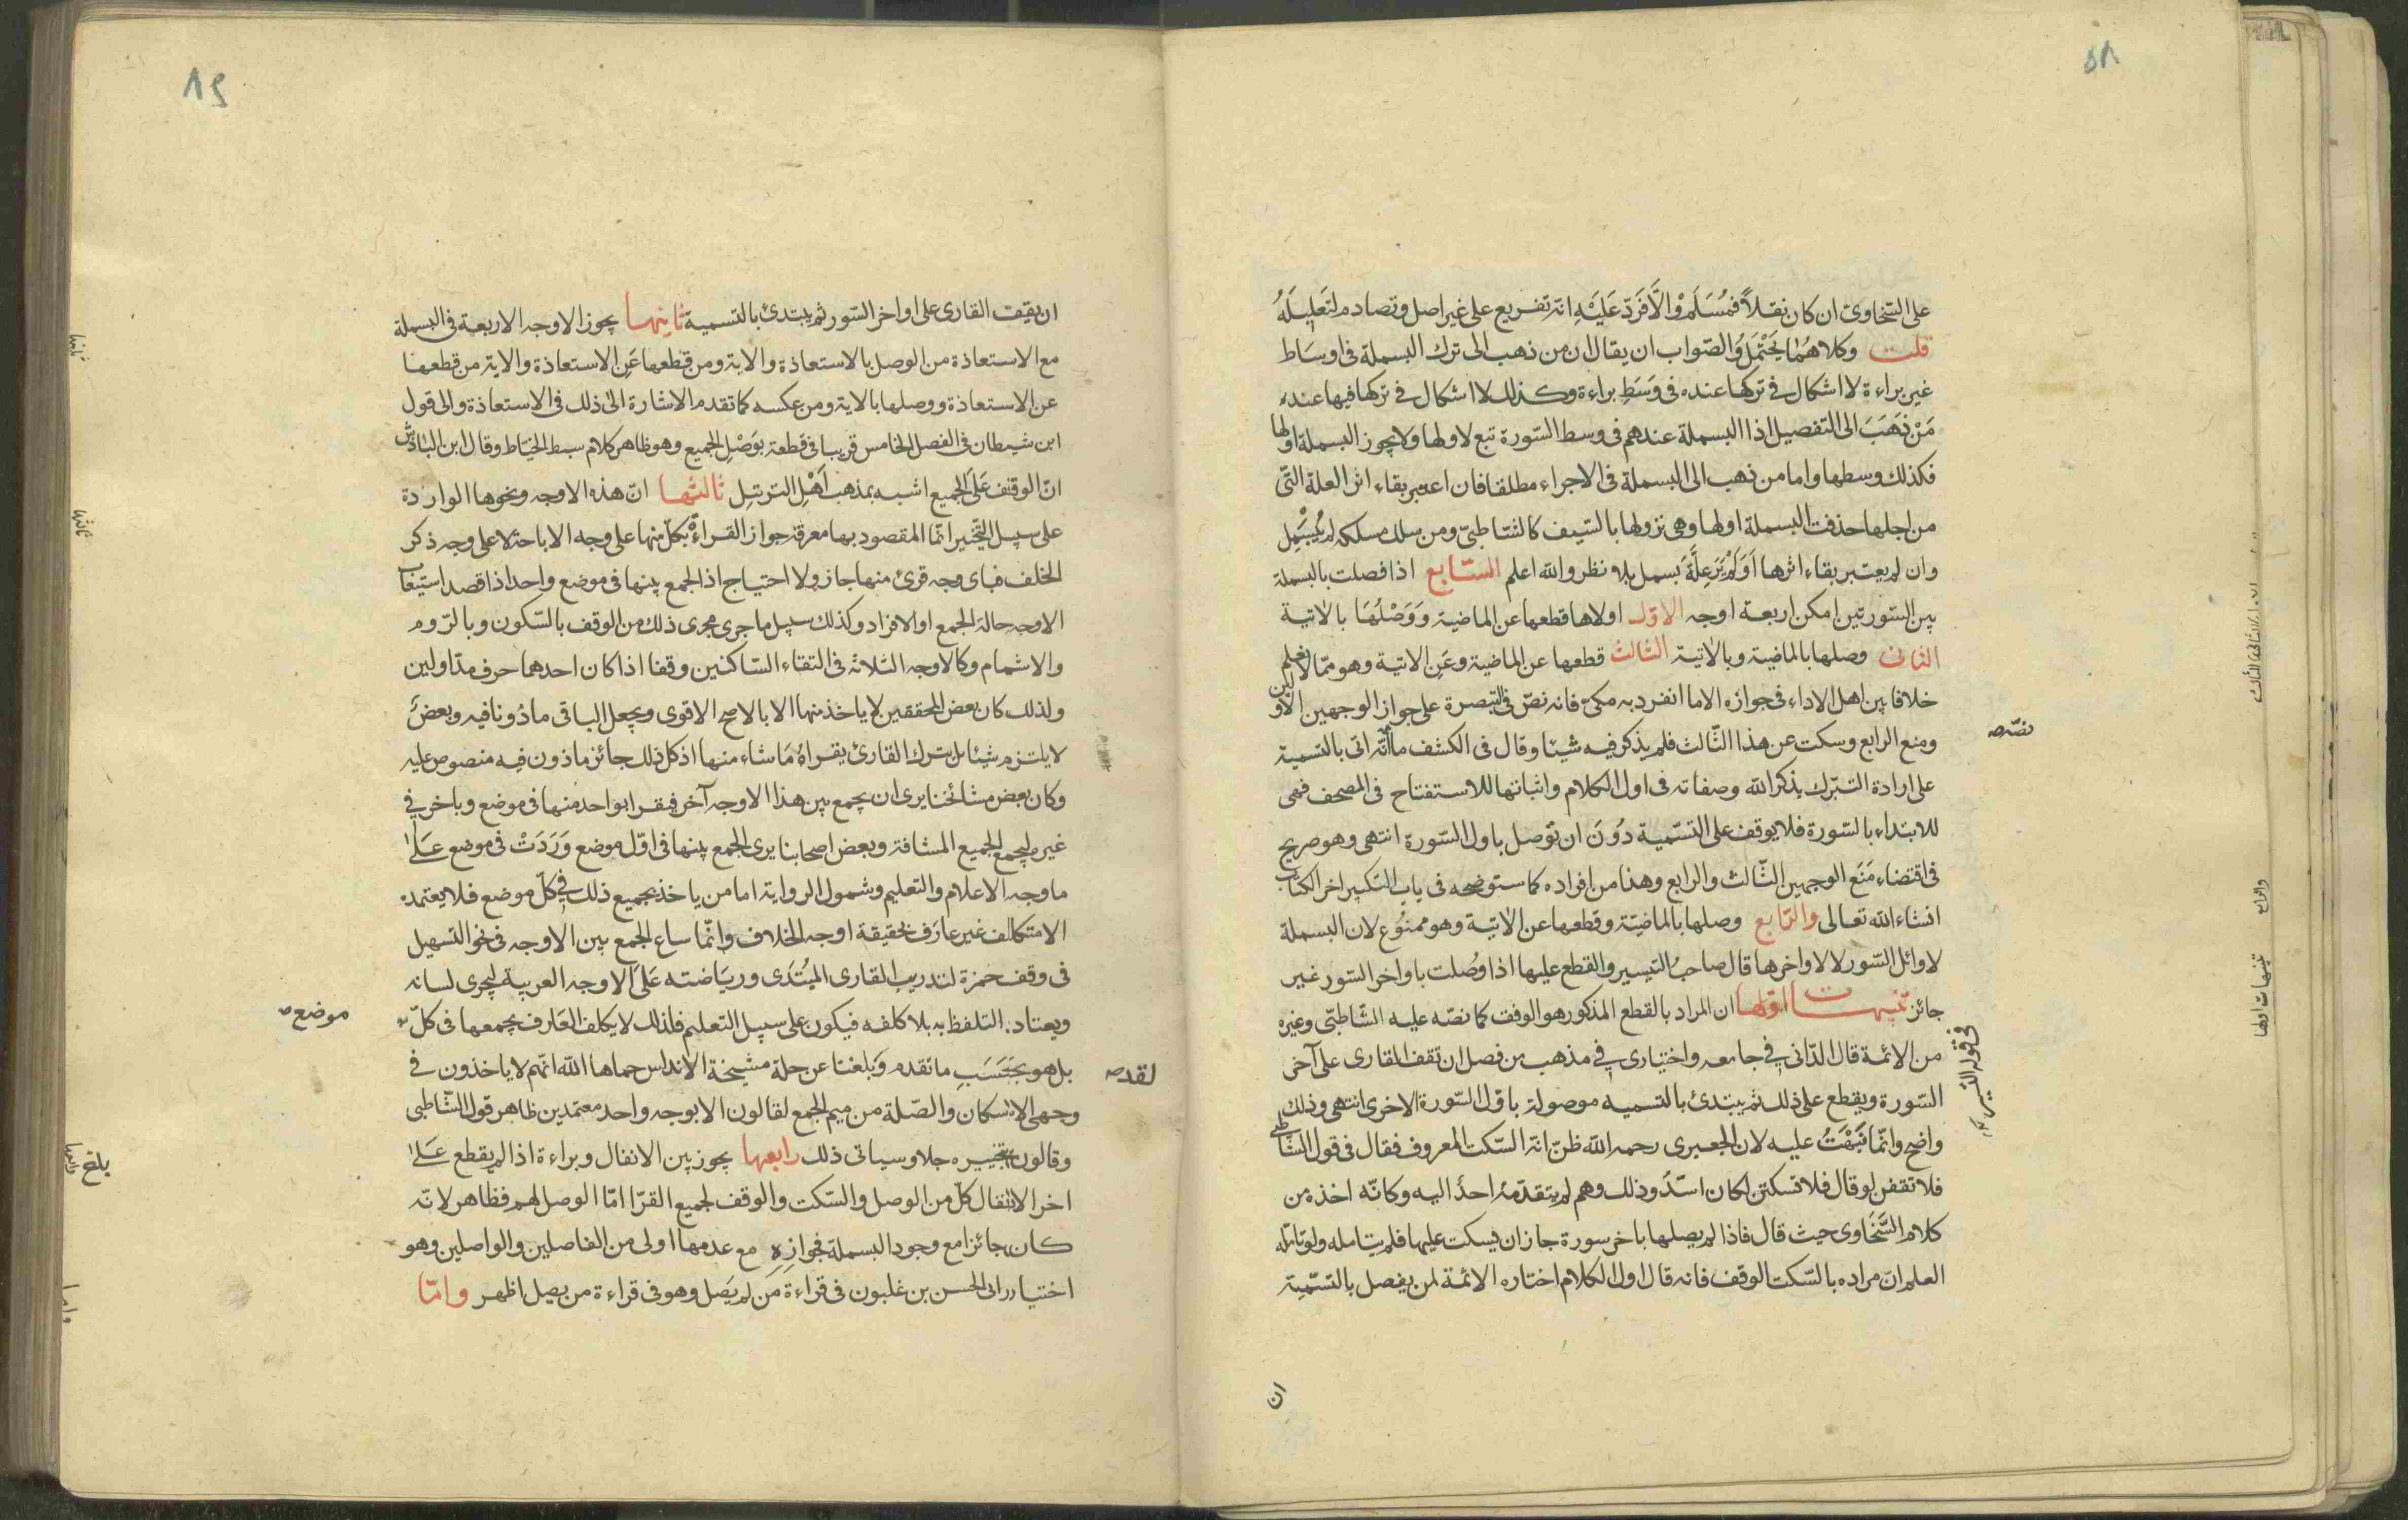 ٥٨
على السخاوىّ ان كان نقلاً فمُسَلَّمْ وْالاَّ فَرَدّ عَلَيْهِ انه تفريع على غير اصل وتصادم لتَعْلِيلَهُ
قلت وكلاهُمَا يُحْتَمَلُ وُالصّواب ان يقال ان من ذهب الى ترك البسملة فى اوسَاط
غير براءة لا اشكال فى تركها عنده فى وَسَطِ براءة وكذلك لا اشكال فى تركها فيها عند
مَنْ ذَهَبَ الى التفصيل اذا البسملة عندهم فى وسط السّورة تبع لاولها ولا يجوز البسملة اولها
فكذلك وسطها واما من ذهب الى البسملة فى الاجراء مطلقا فان اعتبر بقاء اثر العلة التّى
من اجلها حذفت البسملة اولها وهى نزولها بالسّيف كالشاطبىّ ومن سلك مسلكه لم يُبَسْمِل
وان لم يعتبر بقاء اثرها اَوَلَمْ يَرَعِلَّةَ بسمل بلا نظر والله اعلم السّابع اذا فصلت بالبسملة
بين السّورتين امكن اربعة اوجه الاوّل اولاها قطعها عن الماضية وَوَصْلُهَا بالاتية
الثانى وصلها بالماضية وبالاتية الثالث قطعها عن الماضية وعَنِ الاتية وهو ممّا لا يعلم
خلافا بين اهل الاداء فى جوازه الاما انفرد به مكىّ فانه نصّ فى التبصرة على جواز الوجهين الاولين
ومنع الرابع وسكت عن هذا الثّالث فلم يذكر فيه شيئا وقال فى الكشف ما انّه اتى بالتسمية
نصّه
على ارادة التبرّك بذكر الله وصفاته فى اول الكلام واثباتها للاستفتاح فى المصحف فهى
للابتداء بالسّورة فلا يوقف على التسّمية دُونَ ان تُوصل باول السّورة انتهى وهو صريح
فى اقتضاء مَنَع الوجهين الثّالث والرابع وهذا من افراده كما ستوضحه فى باب التكبير اخر الكتاب
انشاء الله تعالى والرّابع وصلها بالماضيّة وقطعها عن الاتيّة وهو ممنُوع لان البسملة
لاوائل السّور لا لاواخرها قال صاحبُ التيسير والقطع عليها اذا وُصلت باواخر السّور غير
جائز تنبيهات اوّلها ان المراد بالقطع المذكور هو الوقف كما نصّه عليه الشّاطبّى وغيره
من الائمة قال الدّانى فى جامعه واختيارى فى مذهب من فصل ان تقف القارى على آخر
السّورة ويقطع على ذلك ثم يبتدئ بالتسميه موصولة باوّل السّورة الاخرى انتهى وذلك
واضح وانّما نَبَّهْتُ عليه لان الجعبرى رحمه الله ظنّ انه السّكت المعروف فقال فى قول الشّاطبى
فلا تقفن لو قال فلا تسكتن لكان اسدّ وذلك وهم لم يتقدّمهُ احدٌ اليه وكانّه اخذه من
كلام السَّخَاوى حيث قال فاذا لم يصلها باخر سورة جاز ان يسكت عليها فلم يتامله ولو تامّله
العلم ان مراده بالسّكت الوقف فانه قال اول الكلام اختاره الائمة لمن يفصل بالتسّميّة
ان
ان يقف القارى على اواخر السّور ثم يبتدئ بالتسمية ثانيها يجوز الاوجه الاربعة فى البسملة
مع الاستعاذة من الوصل بالاستعاذة والاية ومن قطعها عَنِ الاستعاذة والاية من قطعها
عن الاستعاذة ووصلها بالاية ومن عكسه كما تقدم الاشارة الىٰ ذلك فى الاستعاذة والى قول
ابن شيطان فى الفصل الخامس قريبا فى قطعة بوَصْلِ الجميع وهو ظاهر كلام سبط الخيّاط وقال ابن الباذش
انّ الوقف عَلَى الجميع اشبه بمذهب اَهْلِ الترتيل ثالثها انّ هذه الاوجه ونحوها الواردة
على سبيل التّخيير انّما المقصود بها معرفة جواز القراءةْ بكلّ منها على وجه الاباحة لا على وجه ذكر
الخلف فباى وجه قرئ منها جاز ولا احتياج اذا الجمع بينها فى موضع واحد اذا قصد استيعاب
الاوجه حالة الجمع او الافراد وكذلك سبيل ما جرى مجرى ذلك من الوقف بالسّكون وبالرّوم
والاشمام وكالاوجه الثلاثة فى التقاء السّاكنين وقفا اذا كان احدهما حرف مدّ اولين
ولذلك كان بعض المحققين لا ياخذ منها الا بالاصح الاقوى ويجعل الباقى ماذونا فيه وبعضٌ
لا يلتزم شيئا بل يترك القارئ يقراهُ مَا شاء منها اذ كل ذلك جائز ماذون فيه منصوص عليه
وكان بعض مشائخنا يرى ان يجمع بين هذا الاوجه آخر فيقرا بواحد منها فى موضع وباخر فى
غيره ليجمع الجميع المشافة وبعض اصحابنا يرى الجمع بينها فى اوّل موضع وَرَدَتْ فى موضع عَلى
ما وجه الاعلام والتعليم وشمول الرواية اما من ياخذ بجميع ذلك فى كلّ موضع فلا يعتمده
الا متكالف غير عارف بحقيقة اوجه الخلاف وانّما ساع الجمع بين الاوجه فى نحو التسهيل
فى وقف حمزة لتدريب القارى المبُتَدى وريَاضته عَلَى الاوجه العربية ليجرى لسانه
ويعتاد التلفظ به بلا كلفه فيكون على سبيل التعليم فلذلك لا يكلف العَارف بجمعها فى كلّ
موضع
بل هو بحَسَبِ ما تقدم وَبلغنا عن جلة مشيخة الاندلس حماها الله انهم لا ياخذون فى
لقد
وجهى الاسكان والصّلة من ميم الجمع لقالون الا بوجه واحد معتمدين ظاهر قول الشّاطبى
وقالون بتخييره جلا وسياتى ذلك رابعها يجوز بين الانفال وبراءة اذا لم يقطع عَلى
اخر الانفال كلّ من الوصل والسّكت والوقف لجميع القرّا امّا الوصل لهم فظاهر لانّه
كان جائزا مع وجود البسملة فجوازه مع عدمها اولى من الفاصلين والواصلين وهو
اختيار ابى الحسن بن غلبون فى قراءة مَن لم يَصل وهو فى قراءة من يصل اظهر وامّا
بلغ